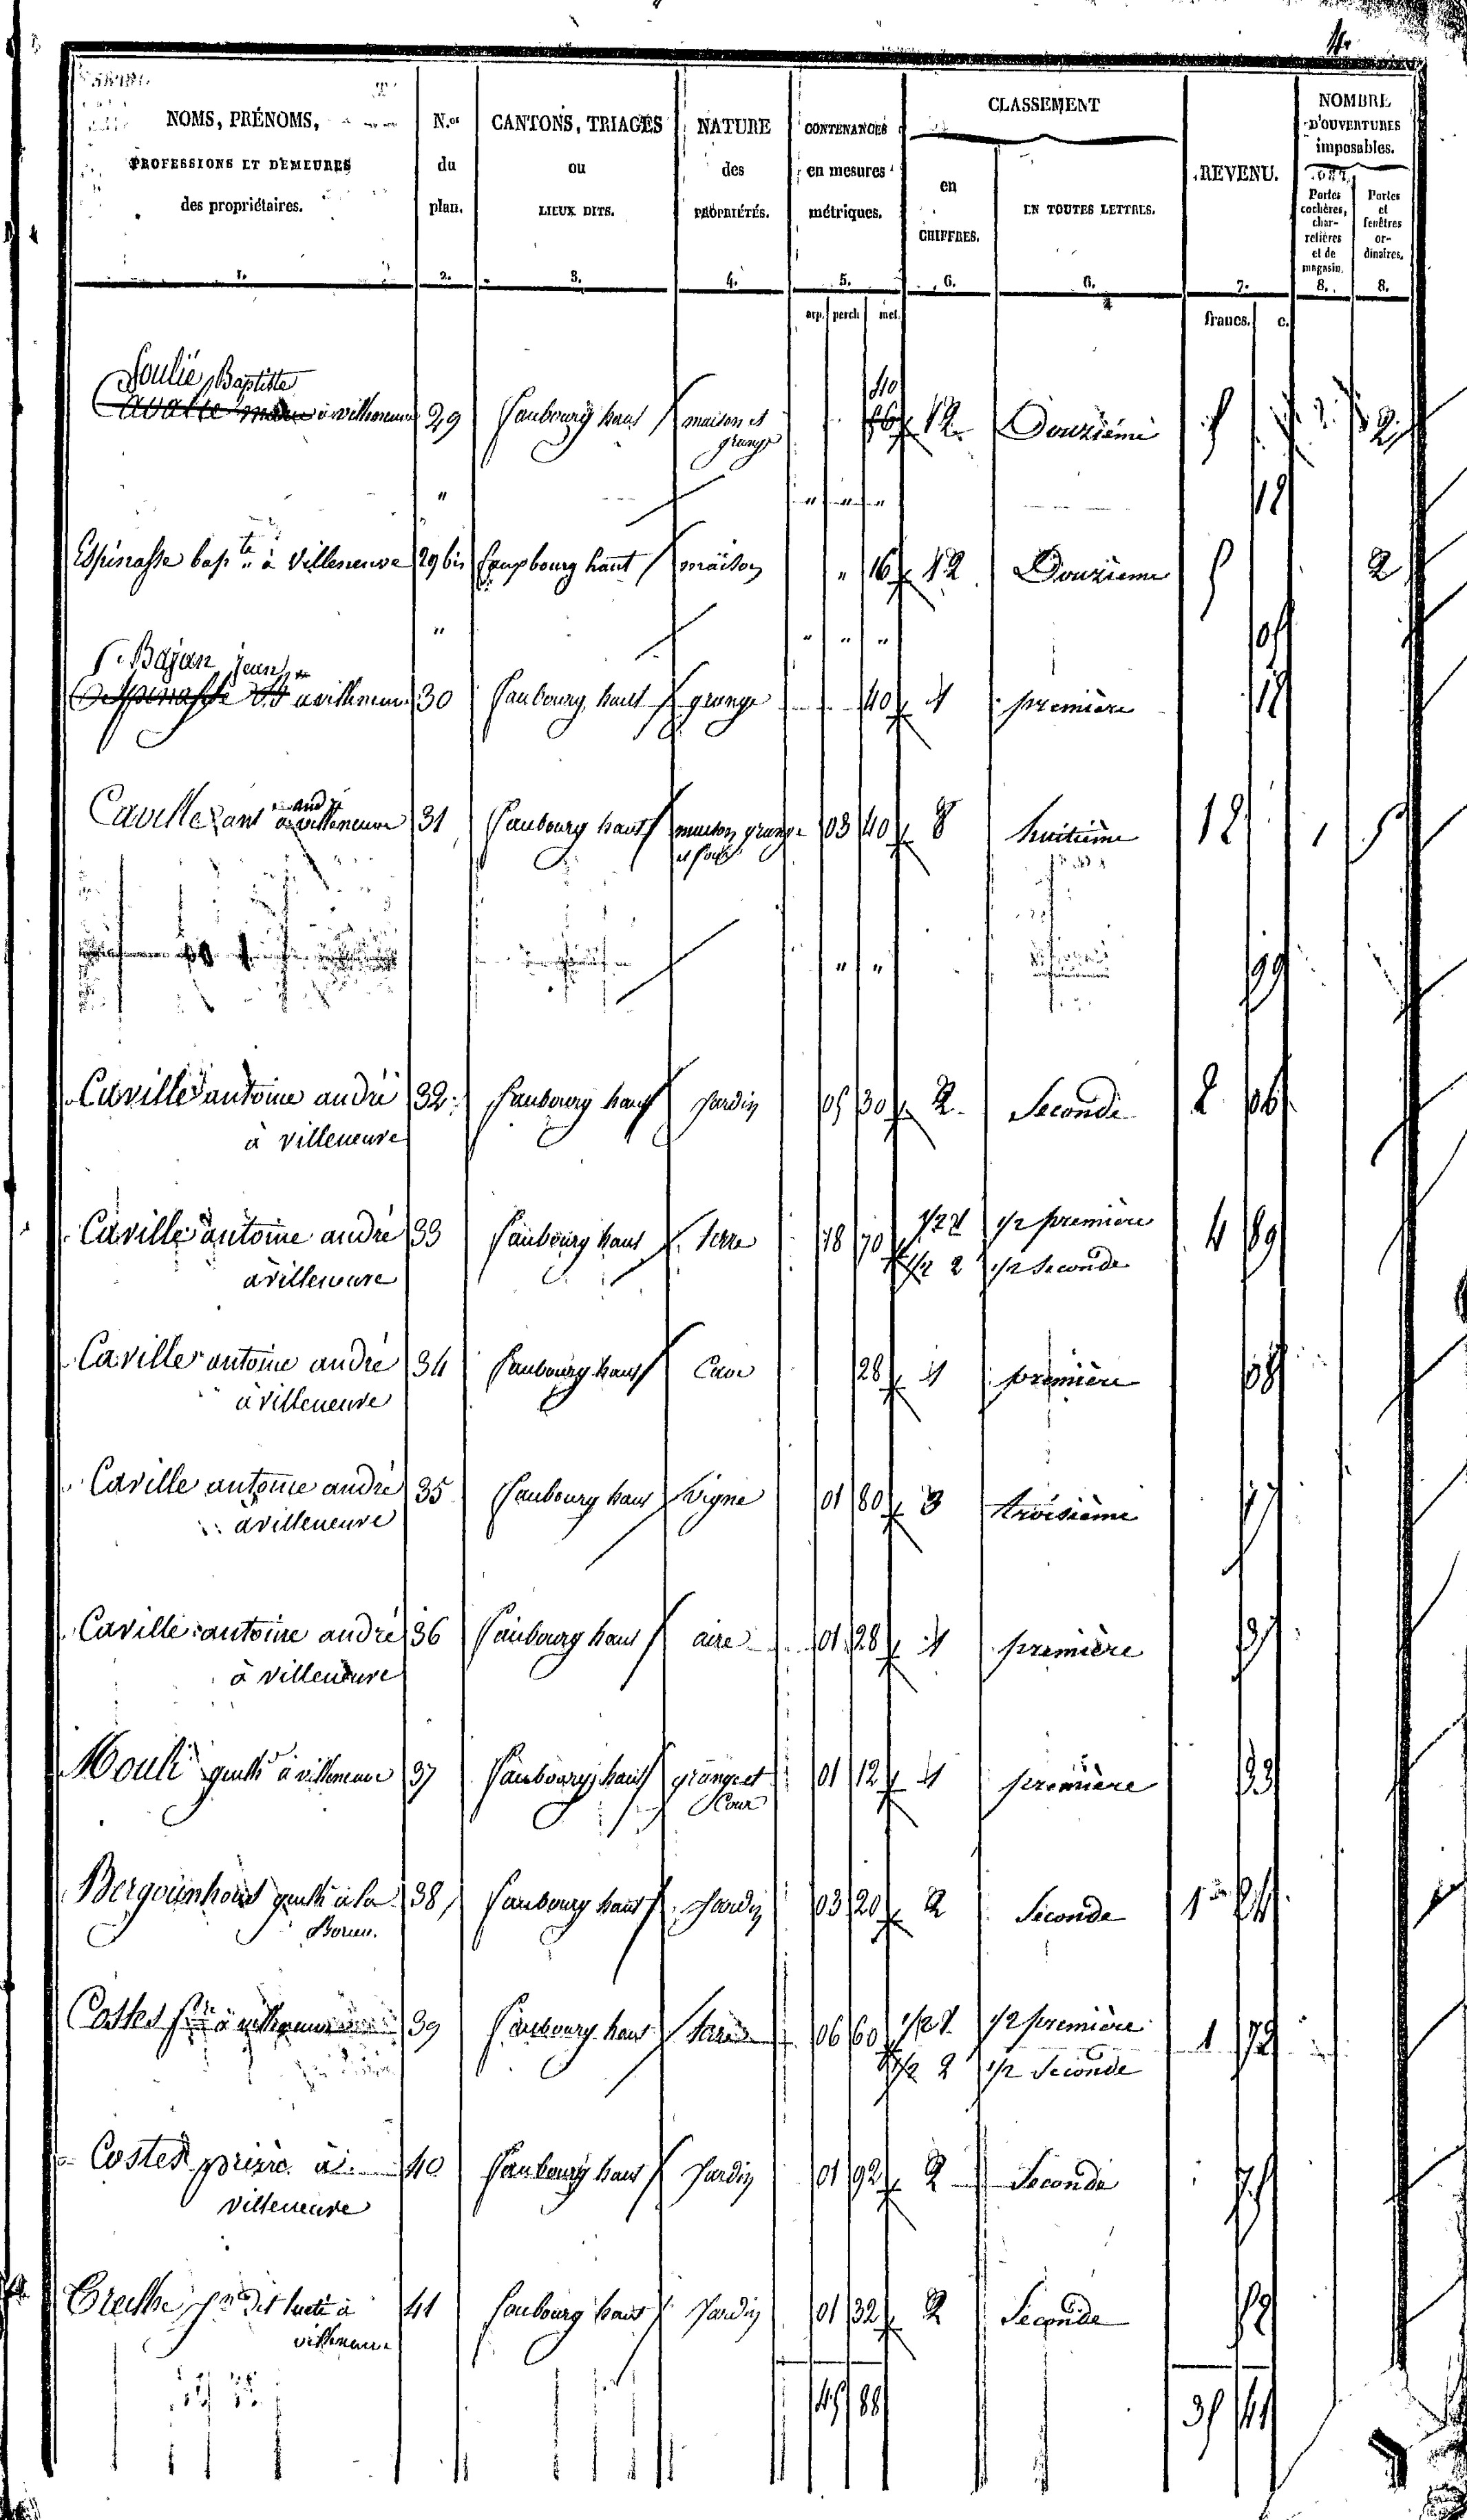 4.
NOMS, PRÉNOMS, PROFESSIONS ET DEMEURES des propriétaires. 1.
N.os du plan. 2.
CANTONS, TRIAGES ou LIEUX DITS. 3.
NATURE des PROPRIÉTÉS. 4.
CONTENANCES en mesures métriques. 5.
CLASSEMENT
en CHIFFRES. 6.
EN TOUTES LETTRES. 6.
REVENU. 7.
NOMBRE D'OUVERTURES imposables.
Portes cochères, charretières et de magasin. 8.
Portes et fenêtres ordinaires. 8.
arp. perch met. francs. c.
Soulié Baptiste
à villeneuve 29 faubourg haut maison et 12 Douzième 5 2
grange
" " " " 12
Espinasse bap.te à Villeneuve 29 bis fauxbourg haut maison " 16 12 Douzieme 5 2
" " " " 05
Bajan jean
a villeneuve 30 faubourg haut grange 40 1 première 12
Caville ant and à villeneuve 31 faubourg haut maison grange 03 40 8 huitième 12 1 5
" " 99
Caville antoine andré 32 faubourg haut Jardin 05 30 2 Seconde 2 06
à villeneuve
Caville antoine andré 33 faubourg haut terre 18 70 1/2 1 1/2 première 4 89
à villeneuve 1/2 2 1/2 Seconde
Caville antoine andré 34 faubourg haut Cave 28 1 première 08
à villeneuve
Caville antoine andré 35 faubourg haut vigne 01 80 3 troisième 17
à villeneuve
Caville antoine andré 36 faubourg haut aire 01 28 1 première 37
à villeneuve
Mouli à villeneuve 37 faubourg haut grange et 01 12 1 première 33
Cour
Bergounhous à la 38 faubourg haut Jardin 03 20 2 Seconde 1 24
Costes à villeneuve 39 faubourg haut terre 06 60 1/2 1 1/2 première 1 72
1/2 2 1/2 Seconde
Costes pierre à 40 faubourg haut Jardin 01 92 2 Seconde 75
villeneuve
dit à 41 faubourg haut Jardin 01 32 2 Seconde 52
villeneuve
45 88 35 41